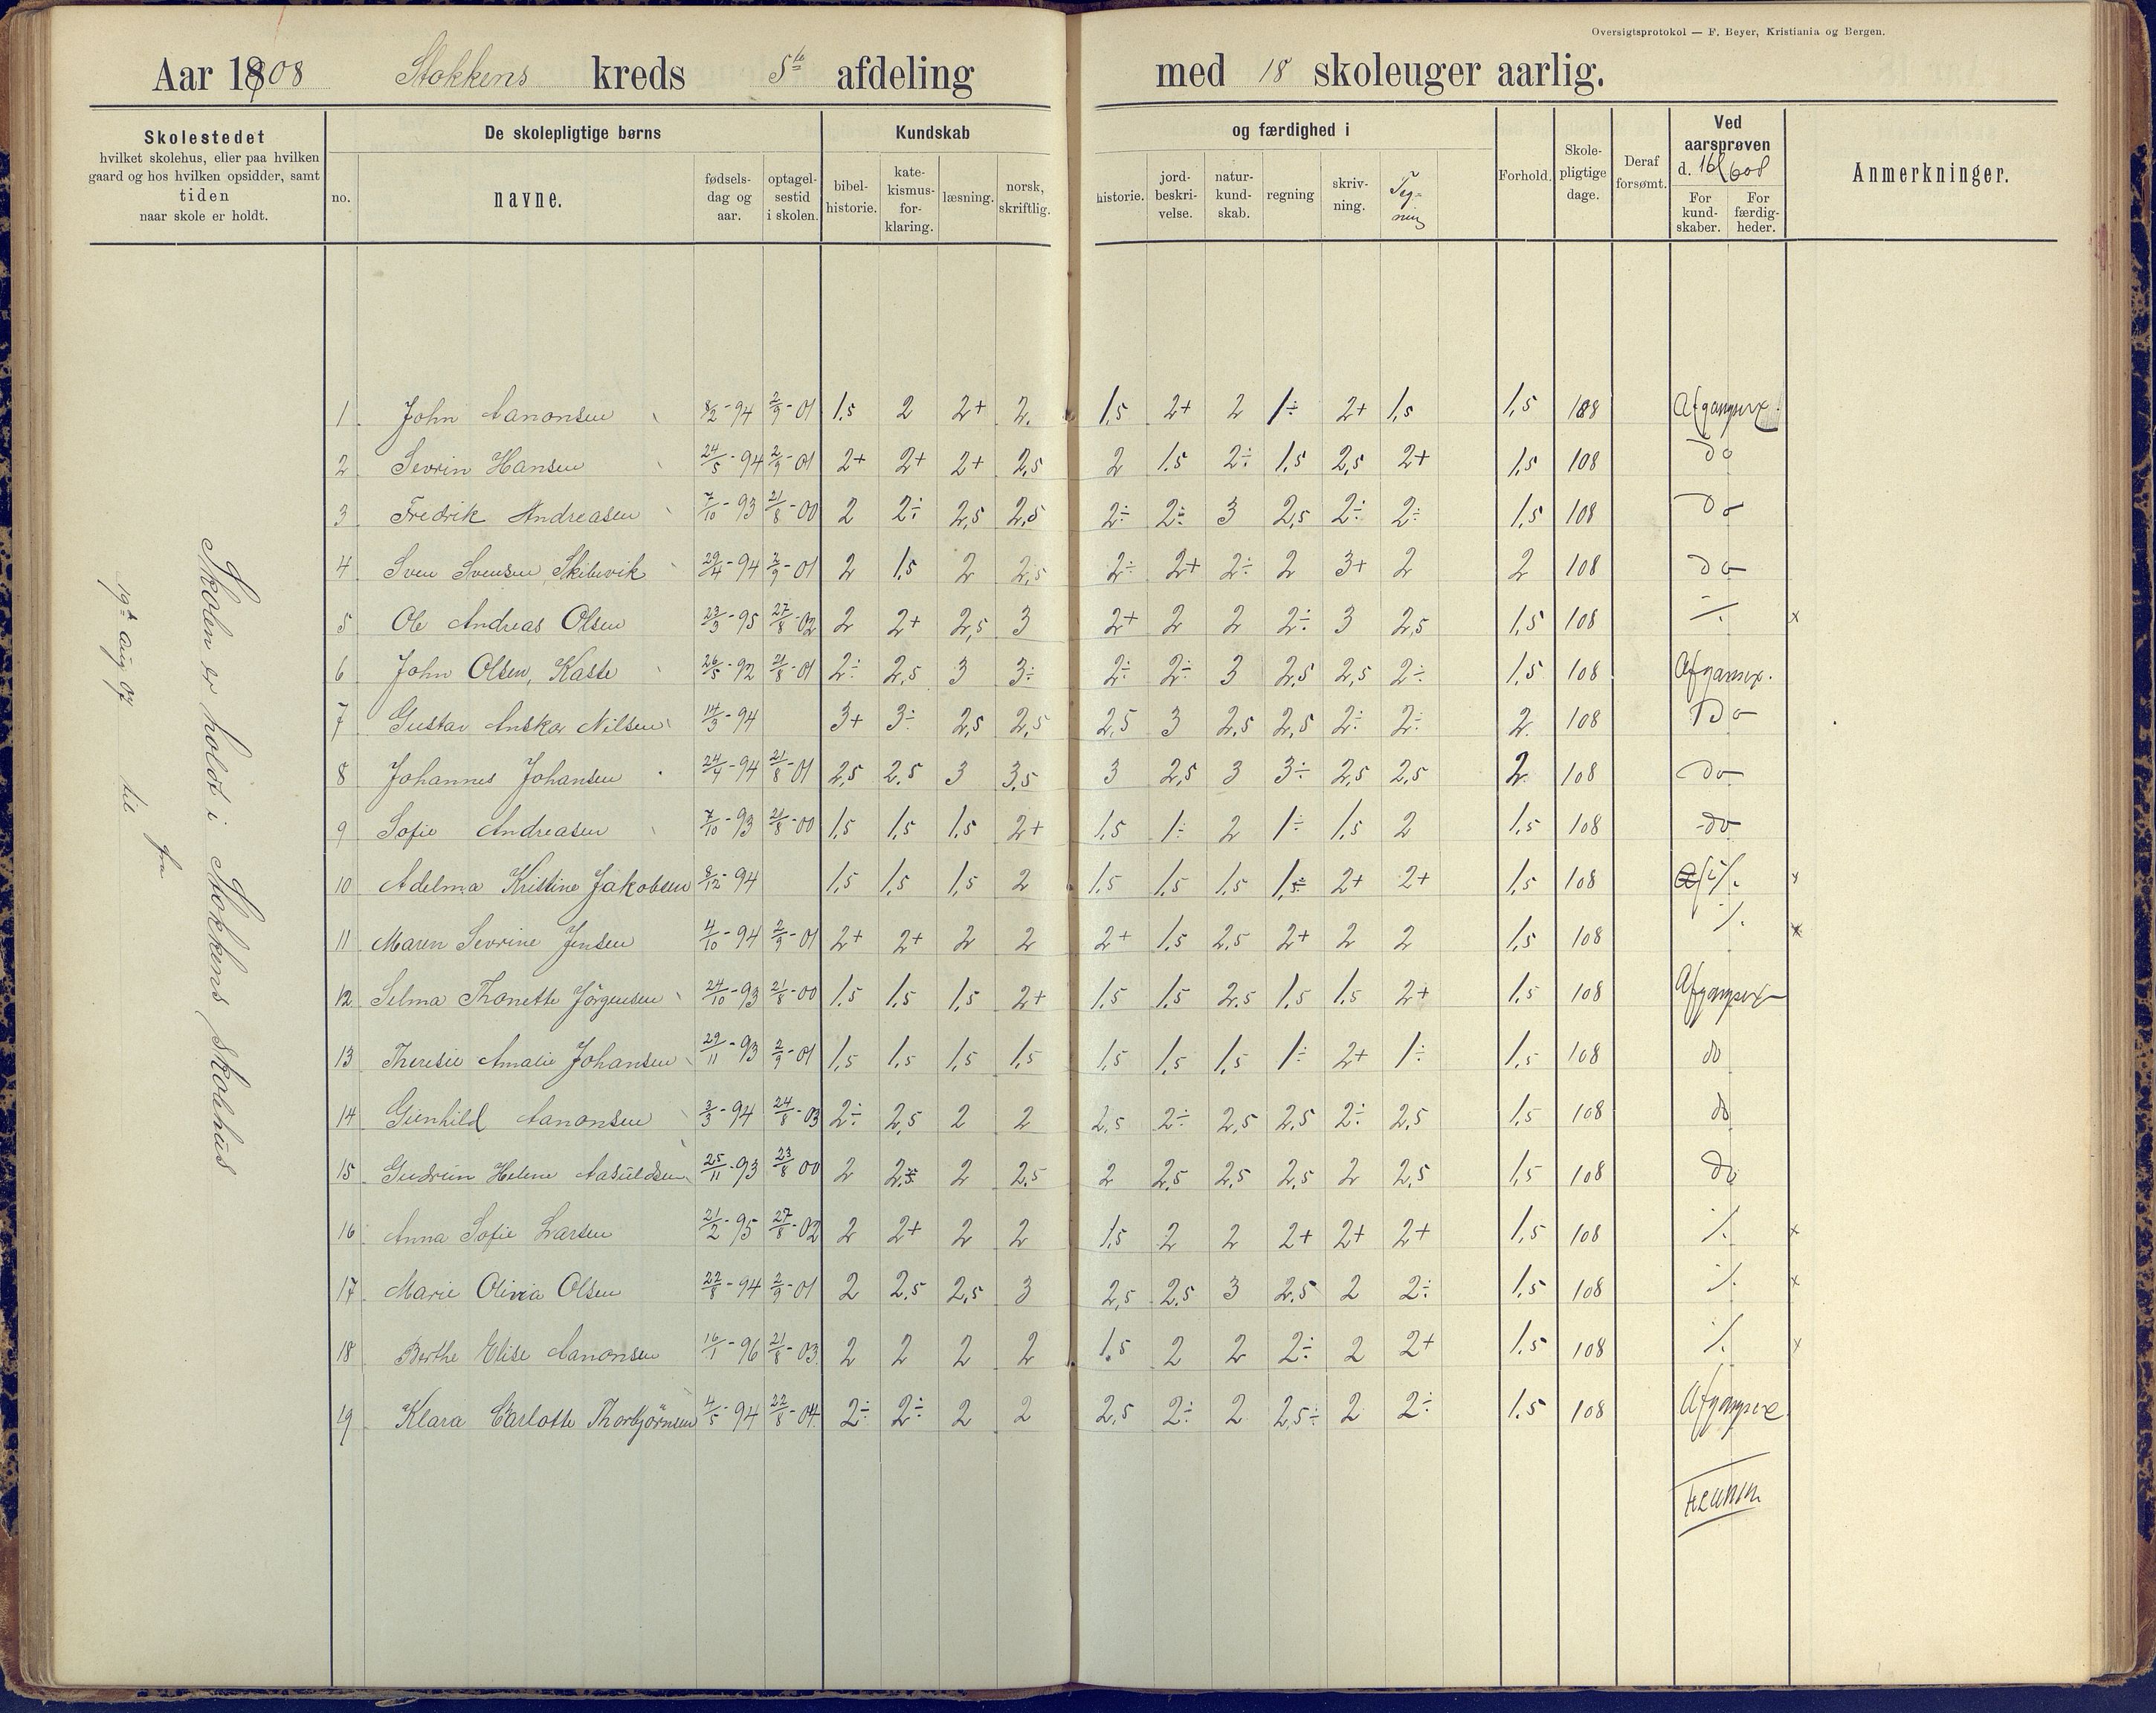 Oversigtsprotokol — F. Beyer, Kristiania og Bergen.
Aar 1908 Stokkens kreds 5te afdeling med 18 skoleuger aarlig.
Skolestedet
hvilket skolehus, eller paa hvilken
gaard og hos hvilken opsidder, samt
tiden
naar skole er holdt.
De skolepligtige børns
no. navne. fødsels-dag og aar. optagel-sestid i skolen.
Kundskab og færdighed i
bibel-historie. kate-kismus-for-klaring. læsning. norsk, skriftlig. historie. jord-beskri-velse. natur-kund-skab. regning skriv-ning. Teg-ning
Forhold. Skole-pligtige dage. Deraf forsømt.
Ved aarsprøven d. 16/6 08
For kund-skaber. For færdig-heder.
Anmerkninger.
Skolen er holdt i Stokkens skolehus
fra
19de Aug 07 til
1 John Aanonsen 8/2-94 2/9-01 1,5 2 2+ 2. 1,5 2+ 2 1÷ 2+ 1,5 1,5 108
2 Sevrin Hansen 24/5-94 2/9-01 2+ 2+ 2+ 2,5 2 1,5 2÷ 1,5 2,5 2+ 1,5 108 do
3 Fredrik Andreasen 7/10-93 21/8-00 2 2÷ 2,5 2,5 2÷ 2÷ 3 2,5 2÷ 2÷ 1,5 108 do
4 Sven Svensen, Skibvik 29/4-94 2/9-01 2 1,5 2 2,5 2÷ 2+ 2÷ 2 3+ 2 2 108 do
5 Ole Andreas Olsen 23/3-95 27/8-02 2 2+ 2,5 3 2+ 2 2 2÷ 3 2,5 1,5 108 ⁒ x
6 John Olsen, Kaste 26/5-92 21/8-01 2÷ 2,5 3 3÷ 2÷ 2÷ 3 2,5 2,5 2÷ 1,5 108
7 Gustav Anskar Nilsen 14/3-94 3+ 3÷ 2,5 2,5 2,5 3 2,5 2,5 2÷ 2÷ 2 108 do
8 Johannes Johansen 24/4-94 21/8-01 2,5 2,5 3 3,5 3 2,5 3 3÷ 2,5 2,5 2 108 do
9 Sofie Andreasen 7/10-93 21/8-00 1,5 1,5 1,5 2+ 1,5 1÷ 2 1÷ 1,5 2 1,5 108 do
10 Adelma Kristine Jakobsen 8/12-94 1,5 1,5 1,5 2 1,5 1,5 1,5 1,5 2+ 2+ 1,5 108 ⁒ x
11 Maren Sevrine Jensen 4/10-94 2/9-01 2+ 2+ 2 2 2+ 1,5 2,5 2+ 2 2 1,5 108 ⁒ x
12 Selma Thonette Jörgensen 24/10-93 21/8-00 1,5 1,5 1,5 2+ 1,5 1,5 2,5 1,5 1,5 2+ 1,5 108
13 Theresie Amalie Johansen 29/11-93 2/9-01 1,5 1,5 1,5 1,5 1,5 1,5 1,5 1÷ 2+ 1÷ 1,5 108 do
14 Gunhild Aanonsen 3/3-94 24/8-03 2÷ 2,5 2 2 2,5 2÷ 2,5 2,5 2÷ 2,5 1,5 108 do
15 Gudrun Helene Aasuldsen 25/11-93 23/8 00 2 2,5 2 2,5 2 2,5 2,5 2,5 2 2,5 1,5 108 do
16 Anna Sofie Larsen 21/2-95 27/8-02 2 2+ 2 2 1,5 2 2 2+ 2+ 2+ 1,5 108 ⁒ x
17 Marie Olivia Olsen 22/8-94 2/9-01 2 2,5 2,5 3 2,5 2,5 3 2,5 2 2÷ 1,5 108 ⁒ x
18 Berthe Elise Aanonsen 16/1-96 21/8-03 2 2 2 2 1,5 2 2 2÷ 2 2+ 1,5 108 ⁒ x
19 Klara Carlotte Thorbjörnsen 4/5-94 22/8-04 2÷ 2÷ 2 2 2,5 2÷ 2 2,5÷ 2 2÷ 1,5 108